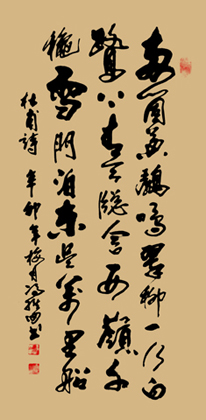 兩箇黃鸝鳴翠柳一行白
鷺上青天牕含西嶺千
穐雪門泊東吳萬里船
杜甫詩 辛卯年梅月馮書